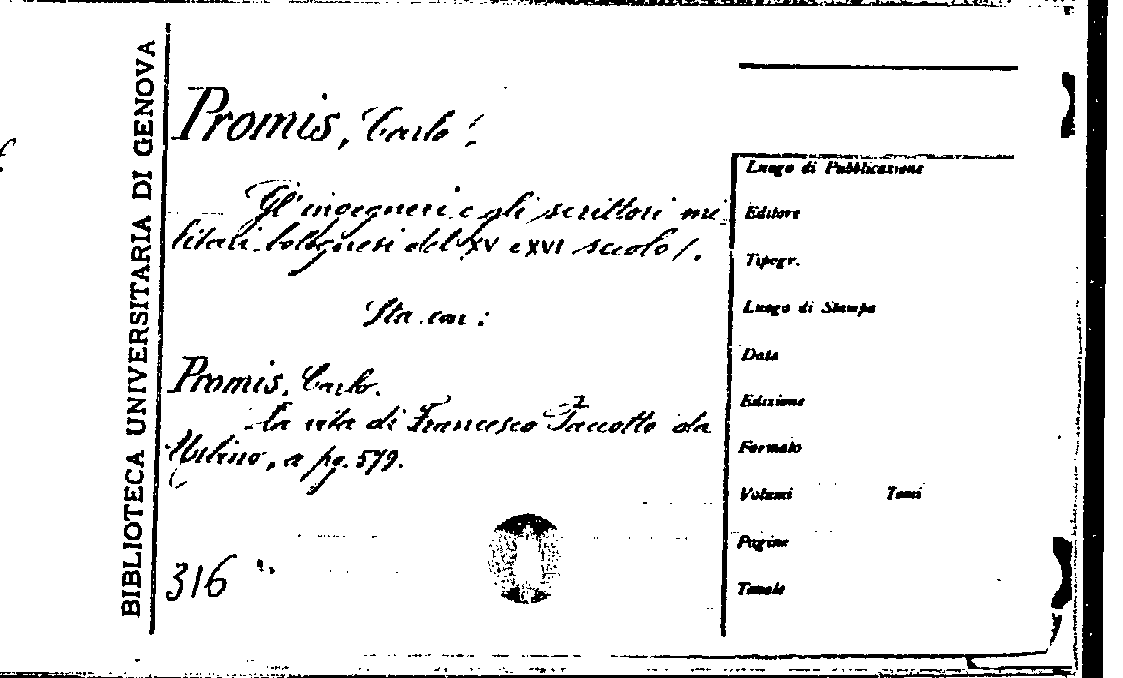 BIBLIOTECA UNIVERSITARIA DI GENOVA
Promis, Carlo!.
Gl'ingegneri e gli scrittori mi
litari bolognesi del XV e XVI secolo/.
Sta con:
Promis, Carlo.
La vita di Francesco Paccotto da
Urbino, a pg. 579.
316
Luogo di Pubblicazione
Editore
Tipogr.
Luogo di Stampa
Data
Edizione
Formato
Volumi Tomi
Pagine
Tavole